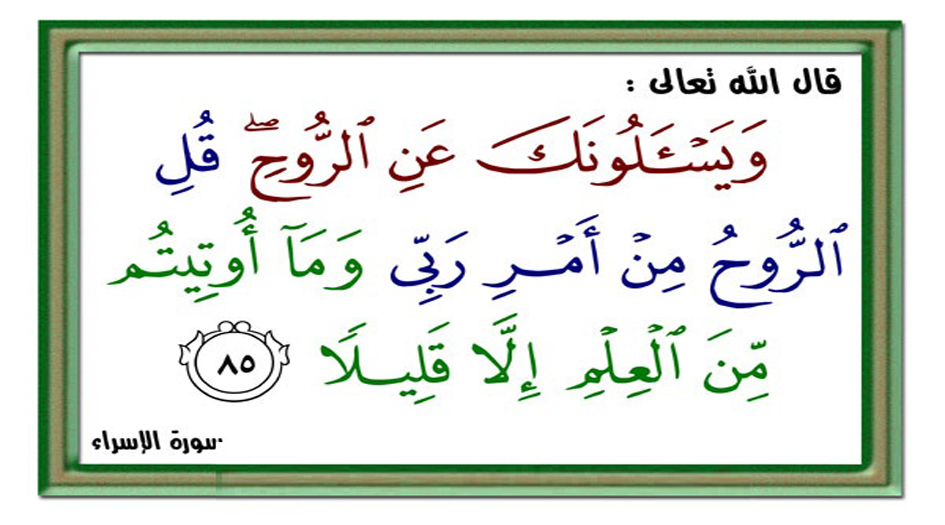 قال الله تعالى :
وَيَسْـَٔلُونَكَ عَنِ ٱلرُّوحِ ۖ قُلِ
ٱلرُّوحُ مِنْ أَمْرِ رَبِّى وَمَآ أُوتِيتُم
مِّنَ ٱلْعِلْمِ إِلَّا قَلِيلًا ٨٥
سورة الإسراء